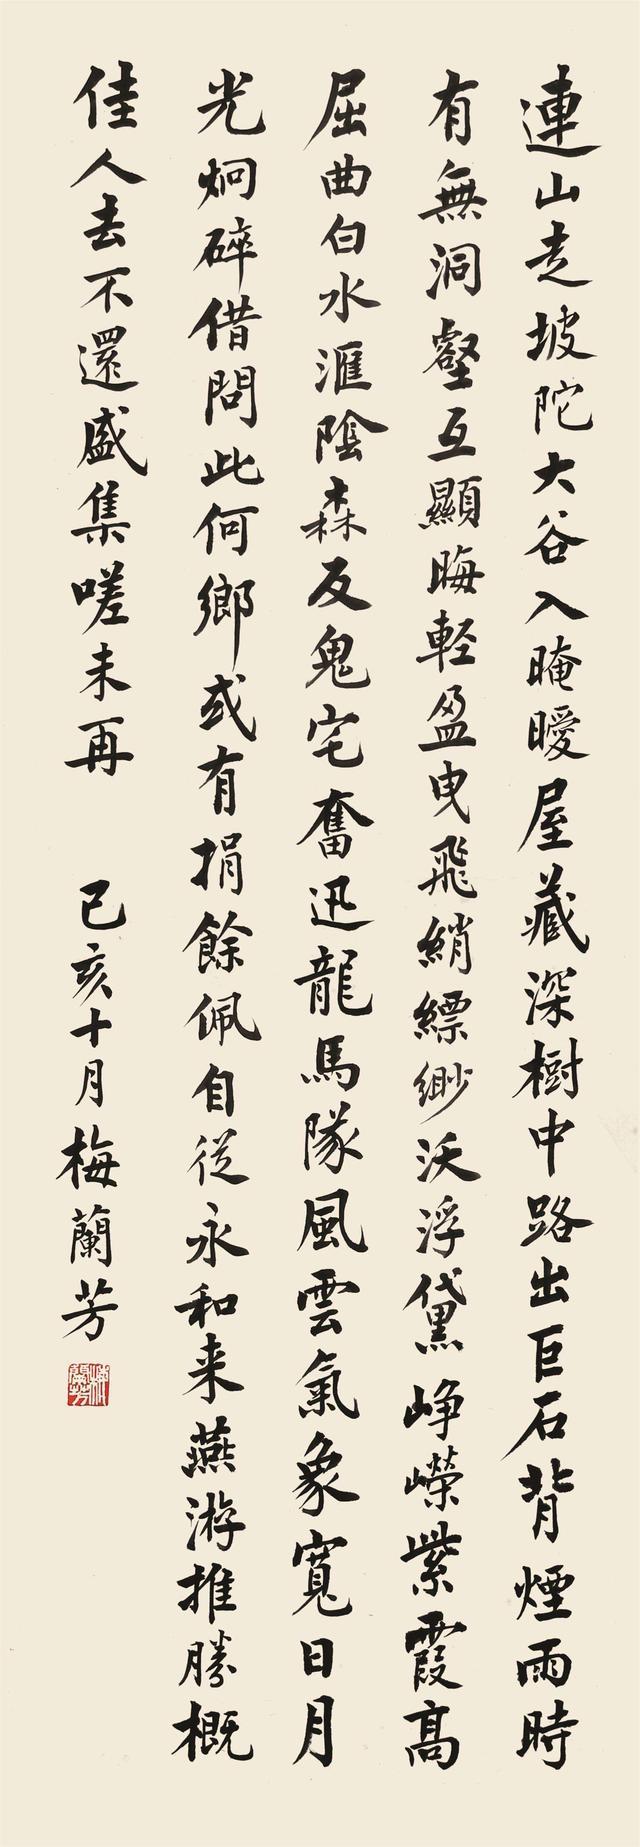 連山走坡陀大谷入晻曖屋藏深樹中路出巨石背煙雨時
有無洞壑互顯晦輕盈曳飛綃縹緲沃浮黛崢嶸紫霞高
屈曲白水滙陰森反鬼宅奮迅龍馬隊風雲氣象寬日月
光炯碎借問此何鄉或有捐餘佩自從永和来燕游推勝概
佳人去不還盛集嗟未再
己亥十月梅蘭芳
梅蘭芳